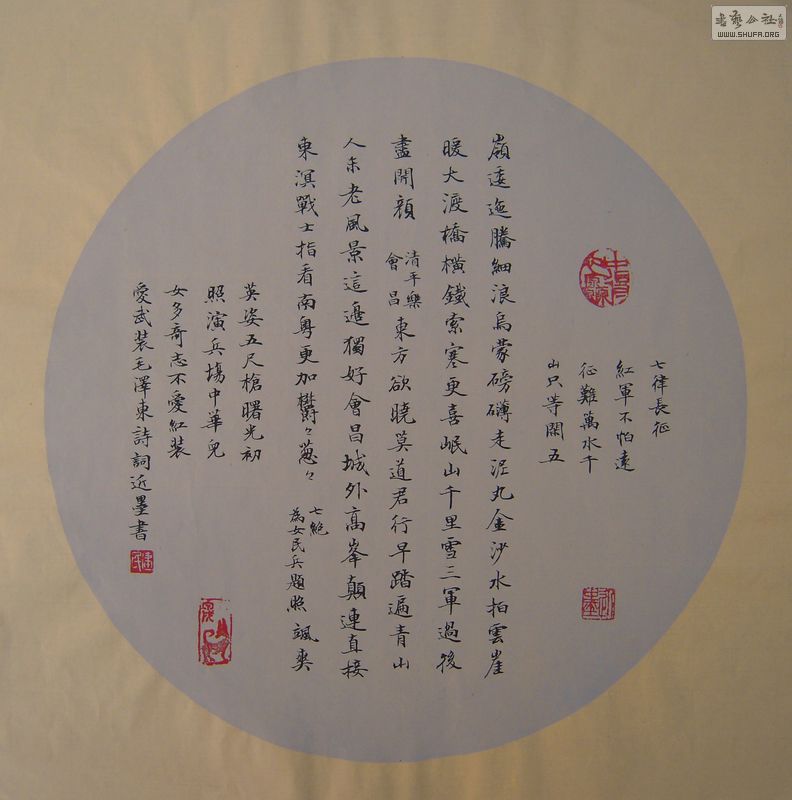 七律長征
紅軍不怕遠
征難萬水千
山只等閑五
嶺逶迤騰細浪烏蒙磅礴走泥丸金沙水拍雲崖
暖大渡橋橫鐵索寒更喜岷山千里雪三軍過後
盡開顏 清平樂會昌 東方欲曉莫道君行早踏遍青山
人未老風景這邊獨好會昌城外高峯顛連直接
東溟戰士指看南粵更加欝々葱々 七絕為女民兵題照 颯爽
英姿五尺槍曙光初
照演兵場中華兒
女多奇志不愛紅裝
愛武裝毛澤東詩詞近墨書
書藝公社
WWW.SHUFA.ORG